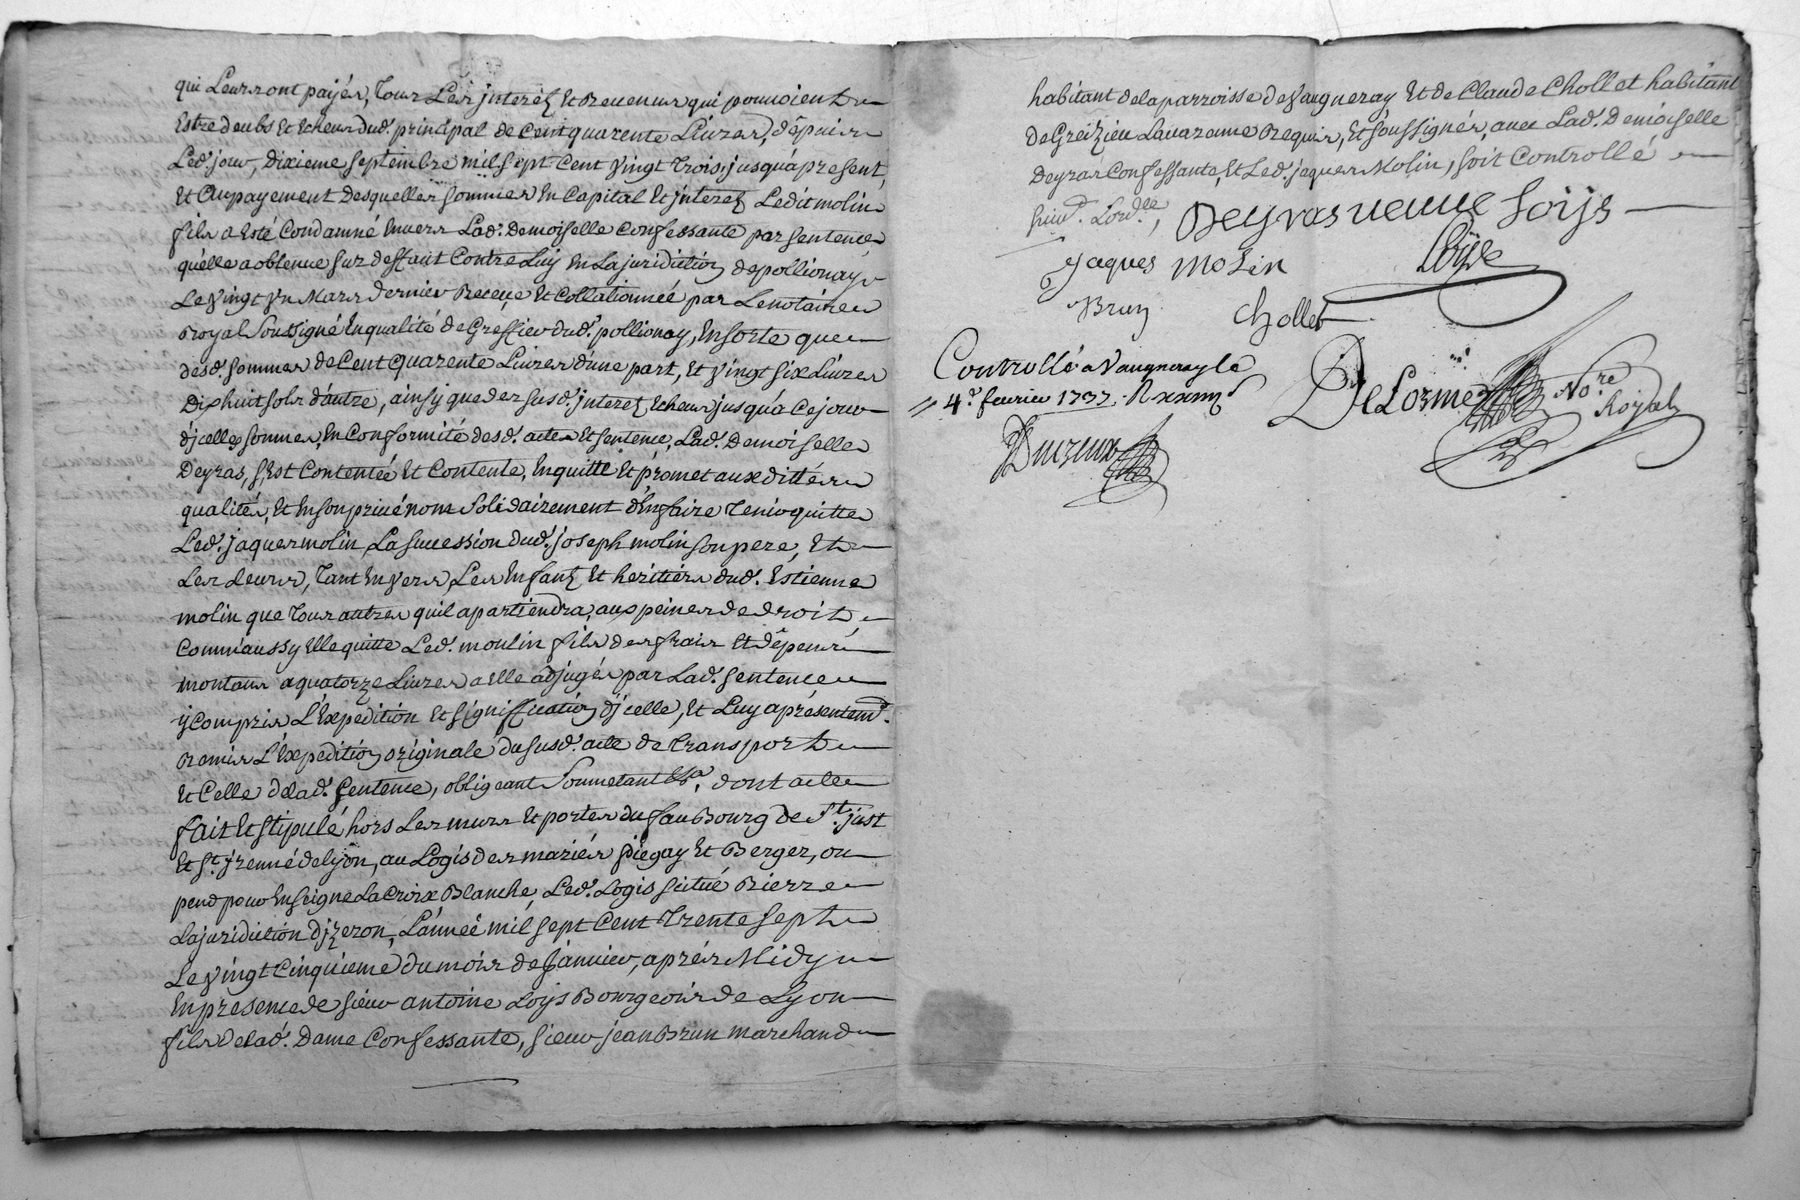 qui Leurs ont payés, Tous Les jnterêt Et Revenus qui pouvoient
Estre deubs Et Echeus dud. principal de Cent quarente Livres, dépuis
Led. jour, dixieme septembre mil sept Cent Vingt Trois, jusqu'a present,
Et Au payement desquelles sommes En Capital Et jnterest Ledit molin
fils a Esté Condamné Envers Lad. Demoiselle Confessante par sentence
qu'elle a obtenue sur deffaut Contre Luy En La juridiction de pollionay
Le Vingt Vn Mars dernier Receüe Et Collationnée par Le notaire
Royal soussigné En qualité de Greffier dud. pollionay, En sorte que
desd. sommes de Cent quarente Livres d'une part, Et Vingt six Livres
Dix huit sols d'autre, ainsy que des susd. jnterest Echeus jusqu'a Ce jour
d'jcelles sommes, En Conformité desd. actes Et sentence, Lad. Demoiselle
Deyras, s'Est Contentée Et Contente, En quitte Et promet aux dittes
qualités, Et En son privé nom solidairement d'En faire Tenir quitte
Led. jaques molin, La succession dud. joseph molin son pere, Et
Les Leurs, Tant Envers Les Enfants Et heritiers dud. Estienne
molin que Tous autres qu'il apartiendra, aux peines de droit,
Comm'aussy Elle quitte Led. moulin fils des frais Et dépens
montans a quatorze Livres a Elle adjugés par Lad. sentence
ÿ Compris L'Expedition Et signiffication d'jcelle, Et Luy a présentem.t
Remis L'Expedition originale du susd. acte de transport
Et Celle de lad. sentence, obligeant soumetant &a. dont acte
fait Et stipulé hors Les murs Et portes du fauBourg de St. just
Et St. jrenné de Lyon, au Logis des mariés piegay Et Berger, ou
pend pour Enseigne La Croix Blanche, Led. Logis scitué Rierre
La juridiction d'jzeron, L'année mil sept Cent Trente sept
Le Vingt Cinquieme du mois de Janvier, aprés Midy
En presence de sieur antoine Loÿs Bourgeois de Lyon
fils de lad. Dame Confessante, sieur jean Brun marchand
habitant de la parroisse de Vaugneray Et de Claude Chollet habitant
de Greizieu Lavarenne Requis, Et soussignés, avec Lad. Demoiselle
Deyras Confessante, Et Led. jaques Molin, soit Controllé
suiv.t L'ord.ce, Deyras veuve Loÿs
Jaques Molin Loÿs
Brun Chollet
Controllé a Vaugneray le
4.e fevrier 1737.
DeLorme No.re Royal
Ducreux